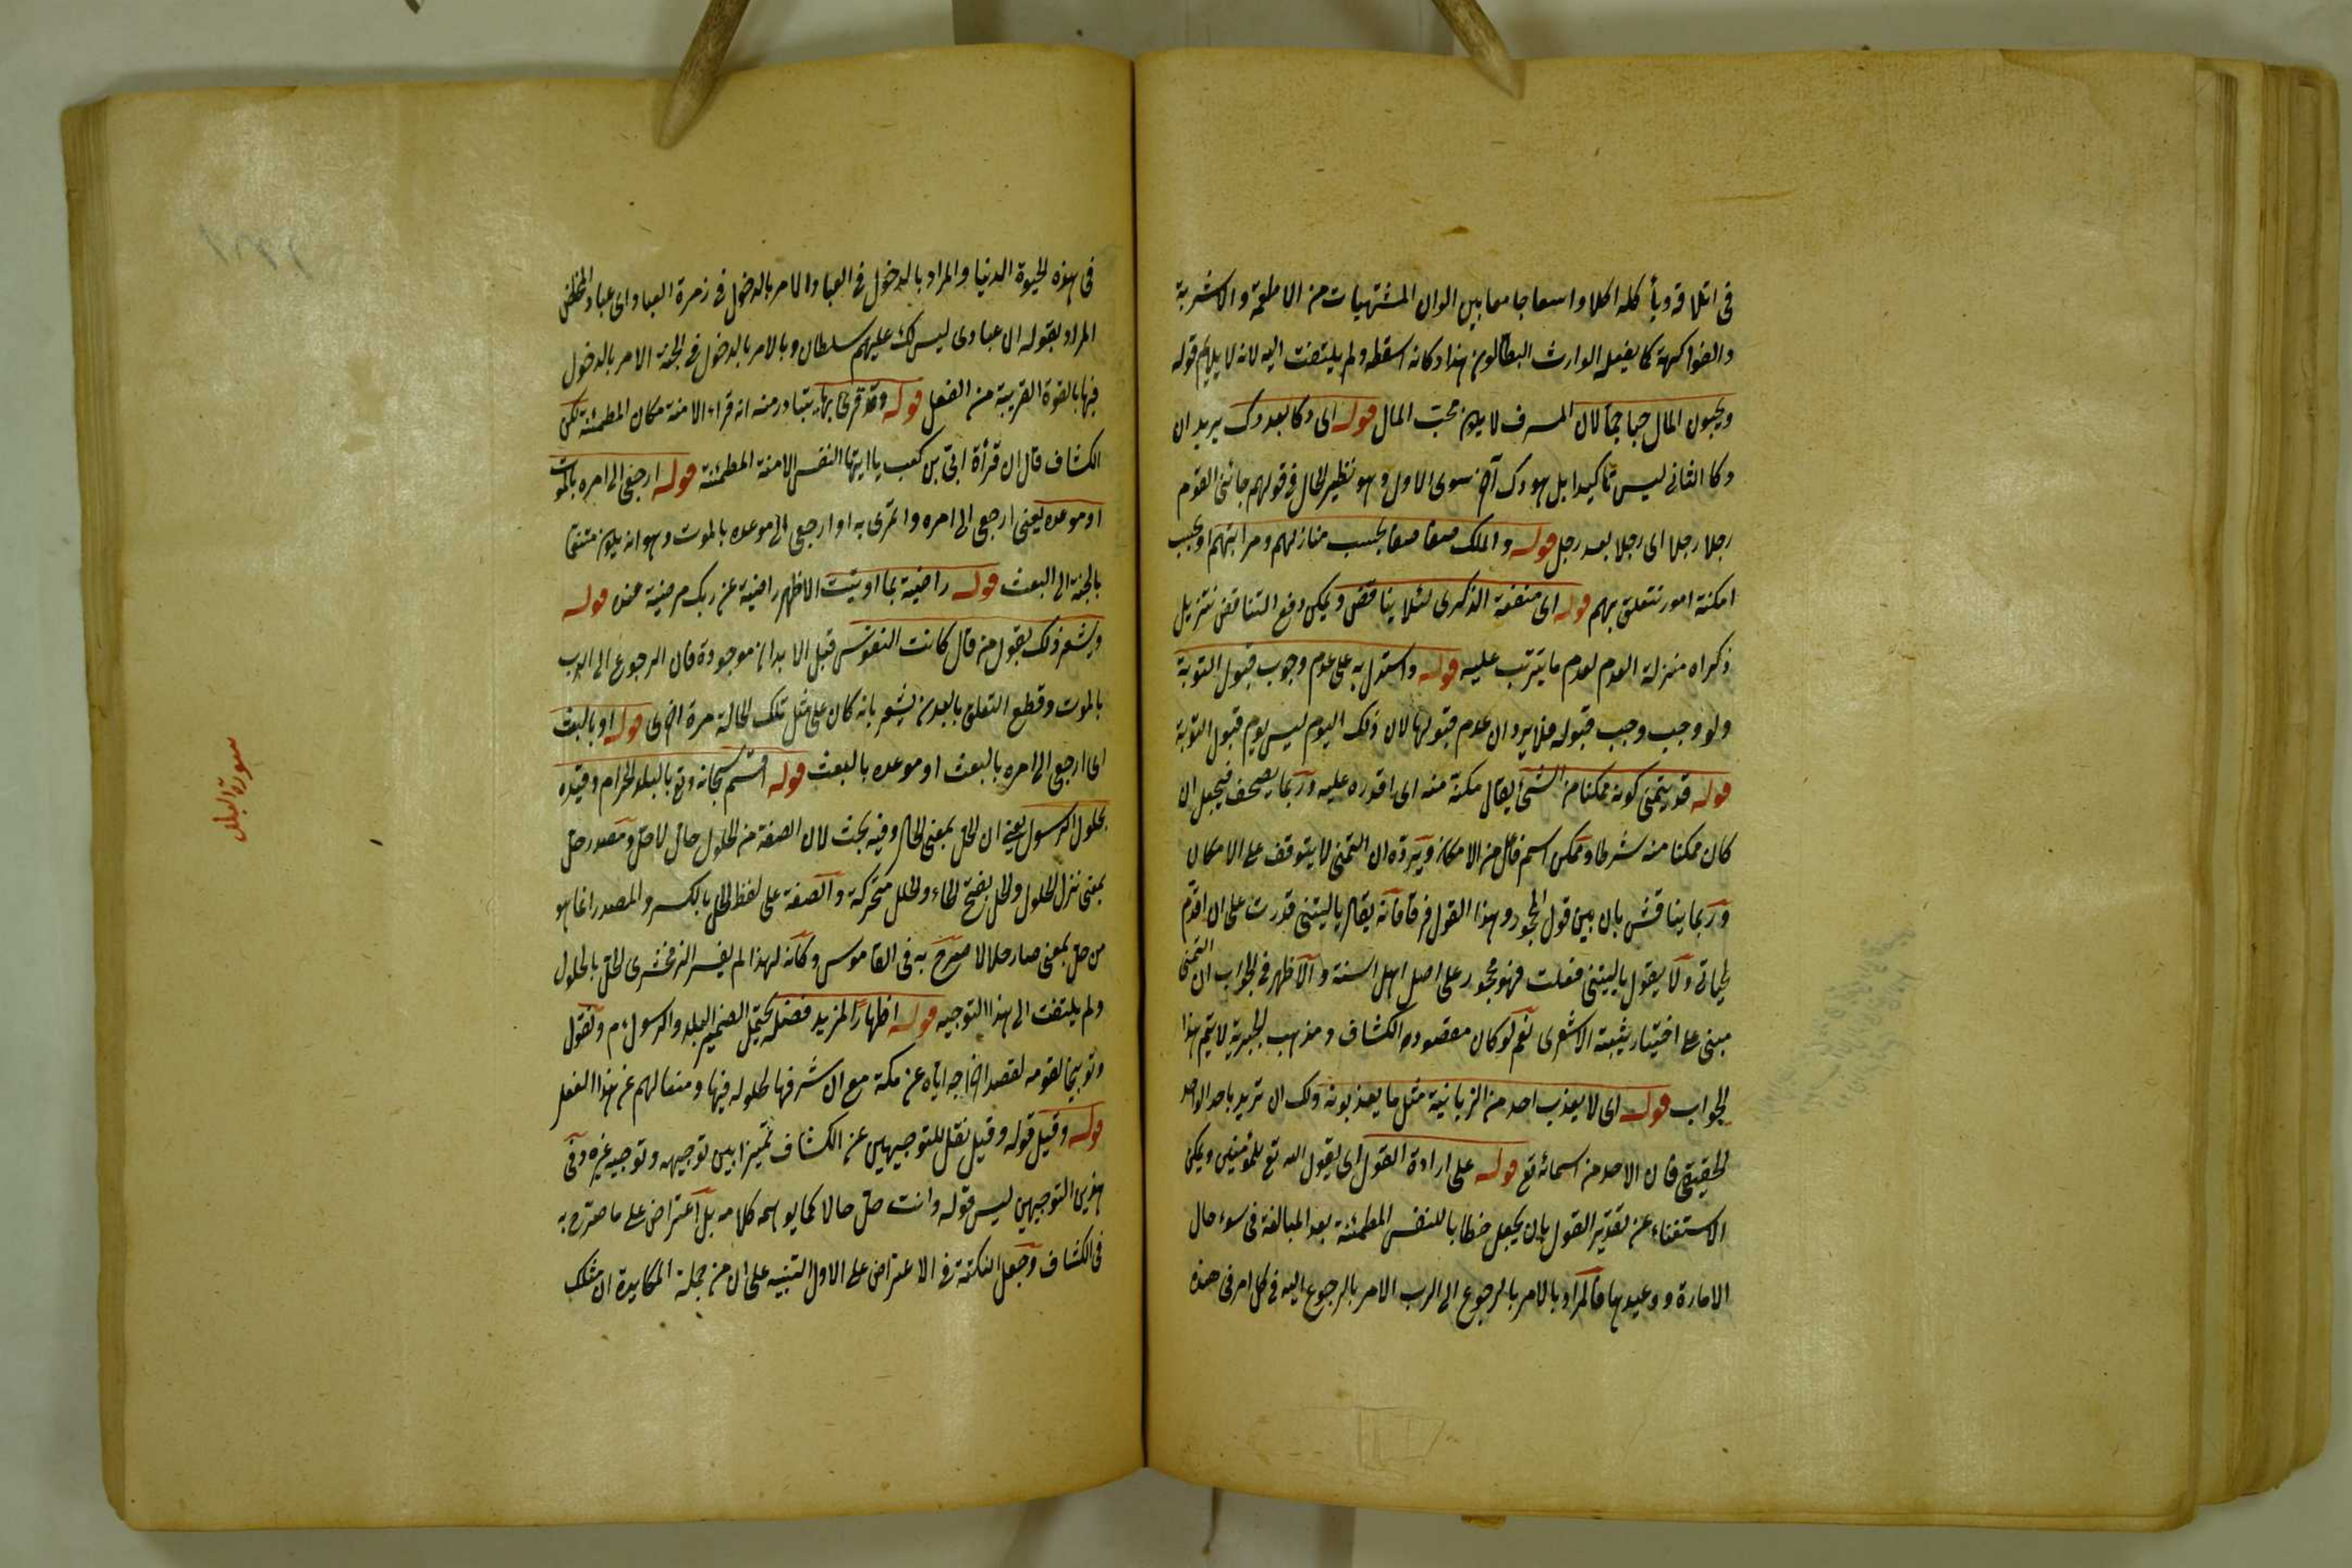 فى اتلافه ويأكله اكلا واسعا جامعا بين الوان المشتهيات من الاطعمة والاشربة
والفواكهة كما يفعل الوارث البطالون هذا وكانه اسقطه ولم يلتفت اليه لانه لا يلايم قوله
ويحبون المال حبا جما لان المسرف لا يكون محب المال قوله اى دكا بعد دك يريد ان
دكا الثانى ليس تاكيدا بل هو دك آخر سوى الاول وهو نظير الحال فى قولهم جائنى القوم
رجلا رجلا اى رجلا بعد رجل قوله والملك صفا صفا بحسب منازلهم ومراتبهم او بحسب
امكنة امور تتعلق بهم قوله اى منفعة الذكرى لئلا يناقض ويمكن دفع التناقض بتنزيل
ذكراه منزلة العدم لعدم ما يترتب عليه قوله واستدل به على عدم وجوب قبول التوبة
ولو وجب وجب قبوله فلا يرد ان عدم قبولها لان ذلك اليوم ليس يوم قبول التوبة
قوله قد يتمنى كونه ممكنا من الشئ يقال مكنه منه اى اقدره عليه وربما يصحف فيجعل ان
كان ممكنا منه شرطا وممكن اسم فاعل من الامكان ويرده ان التمنى لا يتوقف على الامكان
وربما يناقش بان بين قول المجود وهذا القول فرقا فانه يقال ياليتنى قدرت على ان اقدم
لحياتى ولا يقول ياليتنى فعلت فهو محجور على اصل اهل السنة والاظهر فى الجواب ان التمنى
مبنى على اختيار يثبته الاشعرى نعم لو كان مقصود الكشاف ومذهب الجبرية لا يتم هذا
الجواب قوله اى لا يعذب احد من الزبانية مثل ما يعذبونه ولك ان تريد باحد الواحد
الحقيقى فان الاحد من اسمائه تع قوله على ارادة القول اى يقول الله تع للمؤمنين ويمكن
الاستغناء عن تقدير القول بان يجعل خطابا للنفس المطمئنة بعد المبالغة فى سوء حال
الامارة ووعيدها فالمراد بالامر بالرجوع الى الرب الامر بالرجوع اليه فى كل امر فى هذه
فى هذه الحيوة الدنيا والمراد بالدخول فى العباد الامر بالدخول فى زمرة العباد اى عباد المخلص
المراد بقوله ان عبادى ليس لك عليهم سلطان وبالامر بالدخول فى الجنة الامر بالدخول
فيها بالقوة القريبة من الفعل قوله وقد قرئ بها يتبادر منه انه قراء الامنة مكان المطمئنة لكن
الكشاف قال ان قرأة ابى بن كعب يا ايتها النفس الامنة المطمئنة قوله ارجعى الى امره بالموت
او موعده يعنى ارجعى الى امره وائتمرى به او ارجعى الى موعده بالموت وهو ان يكون متنعما
بالجنة الى البعث قوله راضية بما اوتيت الاظهر راضية عن ربك مرضية عنه قوله
ويشعر ذلك بقول من قال كانت النفوس قبل الابدان موجودة فان الرجوع الى الرب
بالموت وقطع التعلق بالبدن يشعر بانه كان على مثل تلك الحالة مرة اخرى قوله او بالبعث
اى ارجعى الى امره بالبعث او موعده بالبعث قوله اقسم سبحانه وتع بالبلد الحرام وقيده
بحلول الرسول يعنى ان الحل بمعنى الحال وفيه بحث لان الصفة من الحلول حال لا حل ومصدر حل
بمعنى نزل الحلول والحل بفتح الحاء والحلل متحركة والصفة على لفظ الحل بالكسر والمصدر انما هو
من حل بمعنى صار حلالا صرح به فى القاموس وكانه لهذا لم يفسر الزمخشرى الحل بالحلول
ولم يلتفت الى هذا التوجيه قوله اظهارا لمزيد فضله يحتمل الضمير البلد والرسول ءم ونقول
وتوبيخا لقومه لقصد اخراجه اياه عن مكة مع ان شرفها لحلوله فيها ومنعا لهم عن هذا الفعل
قوله وقيل قوله وقيل نقل للتوجيهين عن الكشاف تمييزا بين توجيهه وتوجيه غيره وفى
هذين التوجيهين ليس قوله وانت حل حالا كما يوهمه كلامه بل اعتراض على ما صرح به
فى الكشاف وجعل النكتة فى الاعتراض على الاول التنبيه على ان من جملة المكابدة ان مثلك
سورة البلد